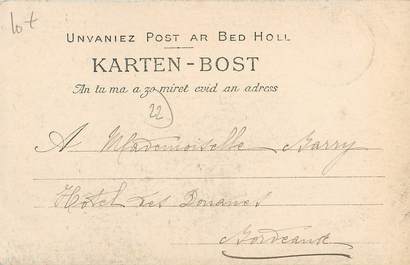 lot
UNVANIEZ POST AR BED HOLL
KARTEN-BOST
An tu ma a zo miret evid an adress
22
A Mademoiselle Barry
Hôtel des Douanes
Bordeaux